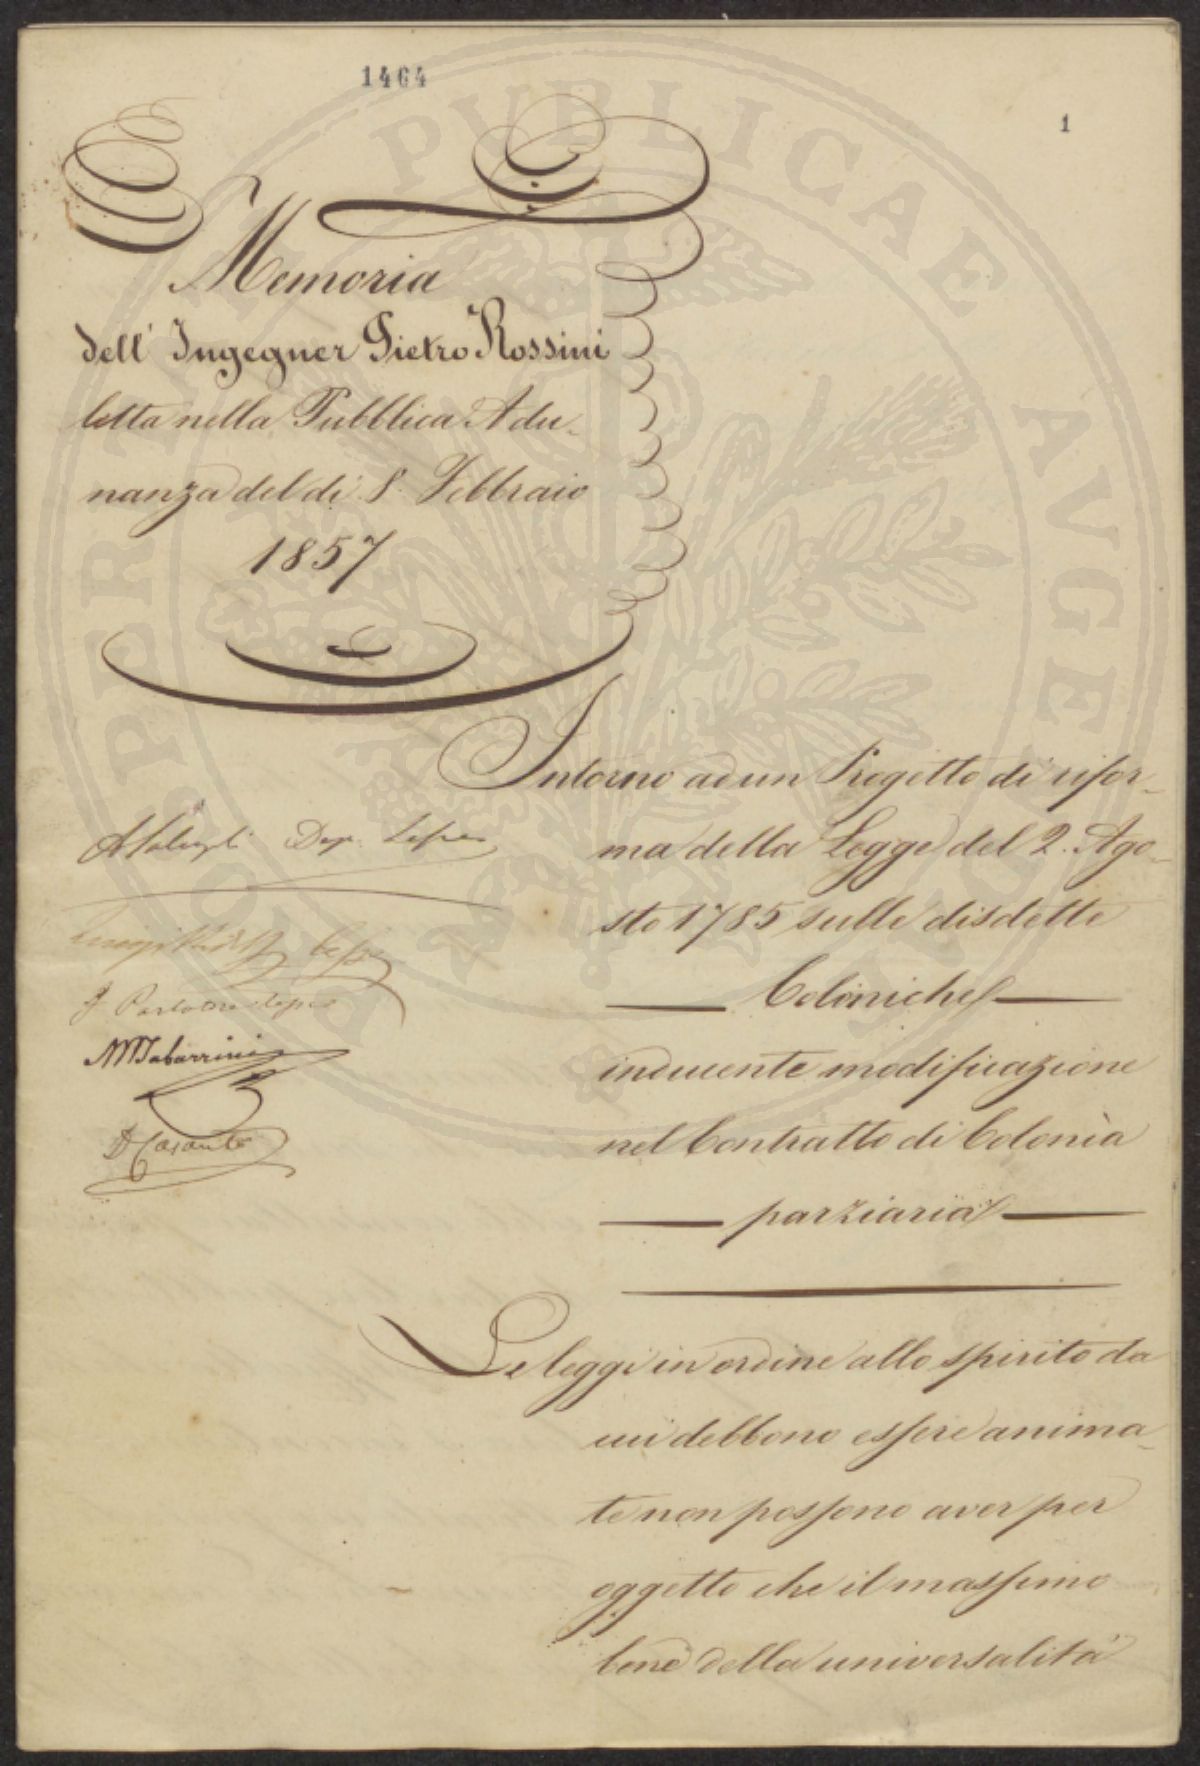 1464
1
Memoria
dell' Ingegner Pietro Rossini
letta nella Pubblica Adu-
nanza del dì 8. Febbraio
1857
Intorno ad un Progetto di rifor-
ma della Legge del 2. Ago-
sto 1785 sulle disdette
Coloniche
inducente modificazione
nel Contratto di Colonìa
parziaria
MTabarrini
Le leggi in ordine allo spirito da
cui debbono essere anima-
te non possono aver per
oggetto che il massimo
bene della universalità
PROSPERITATI PUBLICAE AUGENDAE